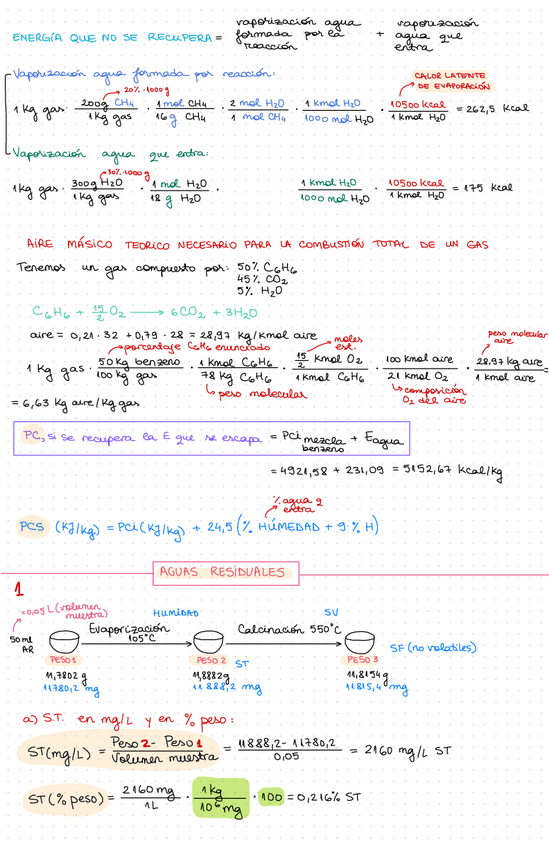 ENERGÍA QUE NO SE RECUPERA = vaporización agua formada por la reacción + vaporización agua que entra
Vaporización agua formada por reacción:
CALOR LATENTE DE EVAPORACIÓN
20% · 1000 g
1 Kg gas · 200g CH4 / 1 Kg gas · 1 mol CH4 / 16 g CH4 · 2 mol H2O / 1 mol CH4 · 1 Kmol H2O / 1000 mol H2O · 10500 Kcal / 1 Kmol H2O = 262,5 Kcal
Vaporización agua que entra:
30% · 1000 g
1 Kg gas · 300g H2O / 1 Kg gas · 1 mol H2O / 18 g H2O · 1 Kmol H2O / 1000 mol H2O · 10500 Kcal / 1 Kmol H2O = 175 Kcal
AIRE MÁSICO TEORICO NECESARIO PARA LA COMBUSTIÓN TOTAL DE UN GAS
Tenemos un gas compuesto por: 50% C6H6
45% CO2
5% H2O
C6H6 + 15/2 O2 → 6CO2 + 3H2O
aire = 0,21 · 32 + 0,79 · 28 = 28,97 Kg/Kmol aire
porcentaje C6H6 enunciado
moles est.
peso molecular aire
1 Kg gas · 50 Kg benzeno / 100 Kg gas · 1 Kmol C6H6 / 78 Kg C6H6 · 15/2 Kmol O2 / 1 Kmol C6H6 · 100 Kmol aire / 21 Kmol O2 · 28,97 Kg aire / 1 Kmol aire =
peso molecular
composición O2 del aire
= 6,63 Kg aire/Kg gas
PC, si se recupera la E que se escapa = PCi mezcla benzeno + Eagua
= 4921,58 + 231,09 = 5152,67 Kcal/Kg
% agua q entra
PCS (KJ/Kg) = PCi (KJ/Kg) + 24,5 (% HÚMEDAD + 9 · % H)
AGUAS RESIDUALES
1
=0,05 L (volumen muestra)
HUMIDAD
SV
50ml AR
Evaporización 105°C
Calcinación 550°C
SF (no volatiles)
PESO 1
PESO 2 ST
PESO 3
11,7802 g
11,8882 g
11,8154 g
11780,2 mg
11888,2 mg
11815,4 mg
a) S.T. en mg/L y en % peso:
ST (mg/L) = Peso 2 - Peso 1 / Volumen muestra = 11888,2 - 11780,2 / 0,05 = 2160 mg/L ST
ST (% peso) = 2160 mg / 1L · 1 Kg / 10^6 mg · 100 = 0,216% ST